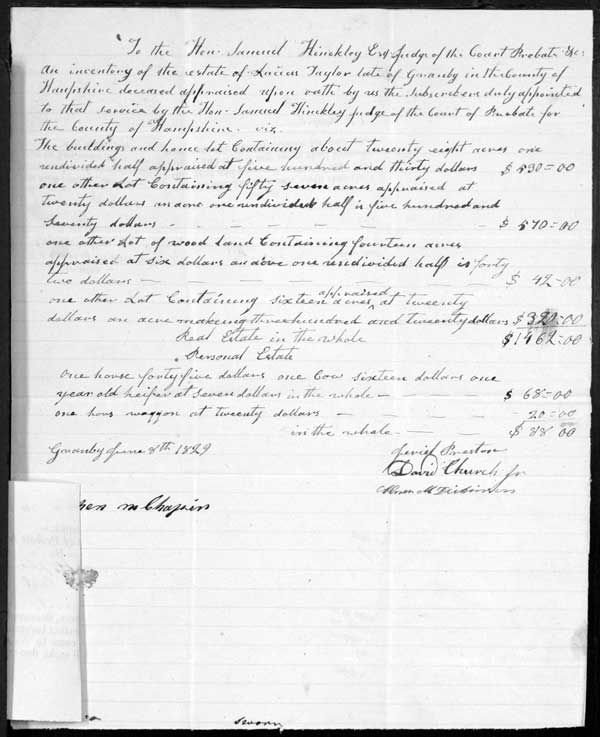 To the Hon. Samuel Hinckley Esq Judge of the Court Probate &c:
An inventory of the estate of Lucius Taylor late of Granby in the County of
Hampshire deceased appraised upon oath by us the Subscribers duly appointed
to that service by the Hon. Samuel Hinckley judge of the Court of Probate for
the County of Hampshire. viz.
The buildings and home lot Containing about twenty eight acres one
undivided half appraised at five hundred and thirty dollars $530=00
one other Lot Containing fifty seven acres appraised at
twenty dollars an acre one undivided half is five hundred and
Seventy dollars - - - - - $570=00
one other Lot of wood Land Containing fourteen acres
appraised at six dollars an acre one undivided half is forty
two dollars - - - - - $42=00
one other Lot Containing sixteen acres ^appraised at twenty
dollars an acre making three hundred and twenty dollars $320=00
Real Estate in the whole $1462=00
Personal Estate
One horse forty five dollars one Cow sixteen dollars one
year old heifer at seven dollars in the whole - - - $68=00
one hors waggon at tweenty dollars - - - - - 20=00
in the whole - - - $88 00
Granby June 8th 1829
Preston
David Church Jr
M Dickinson
m Chapin
sworn